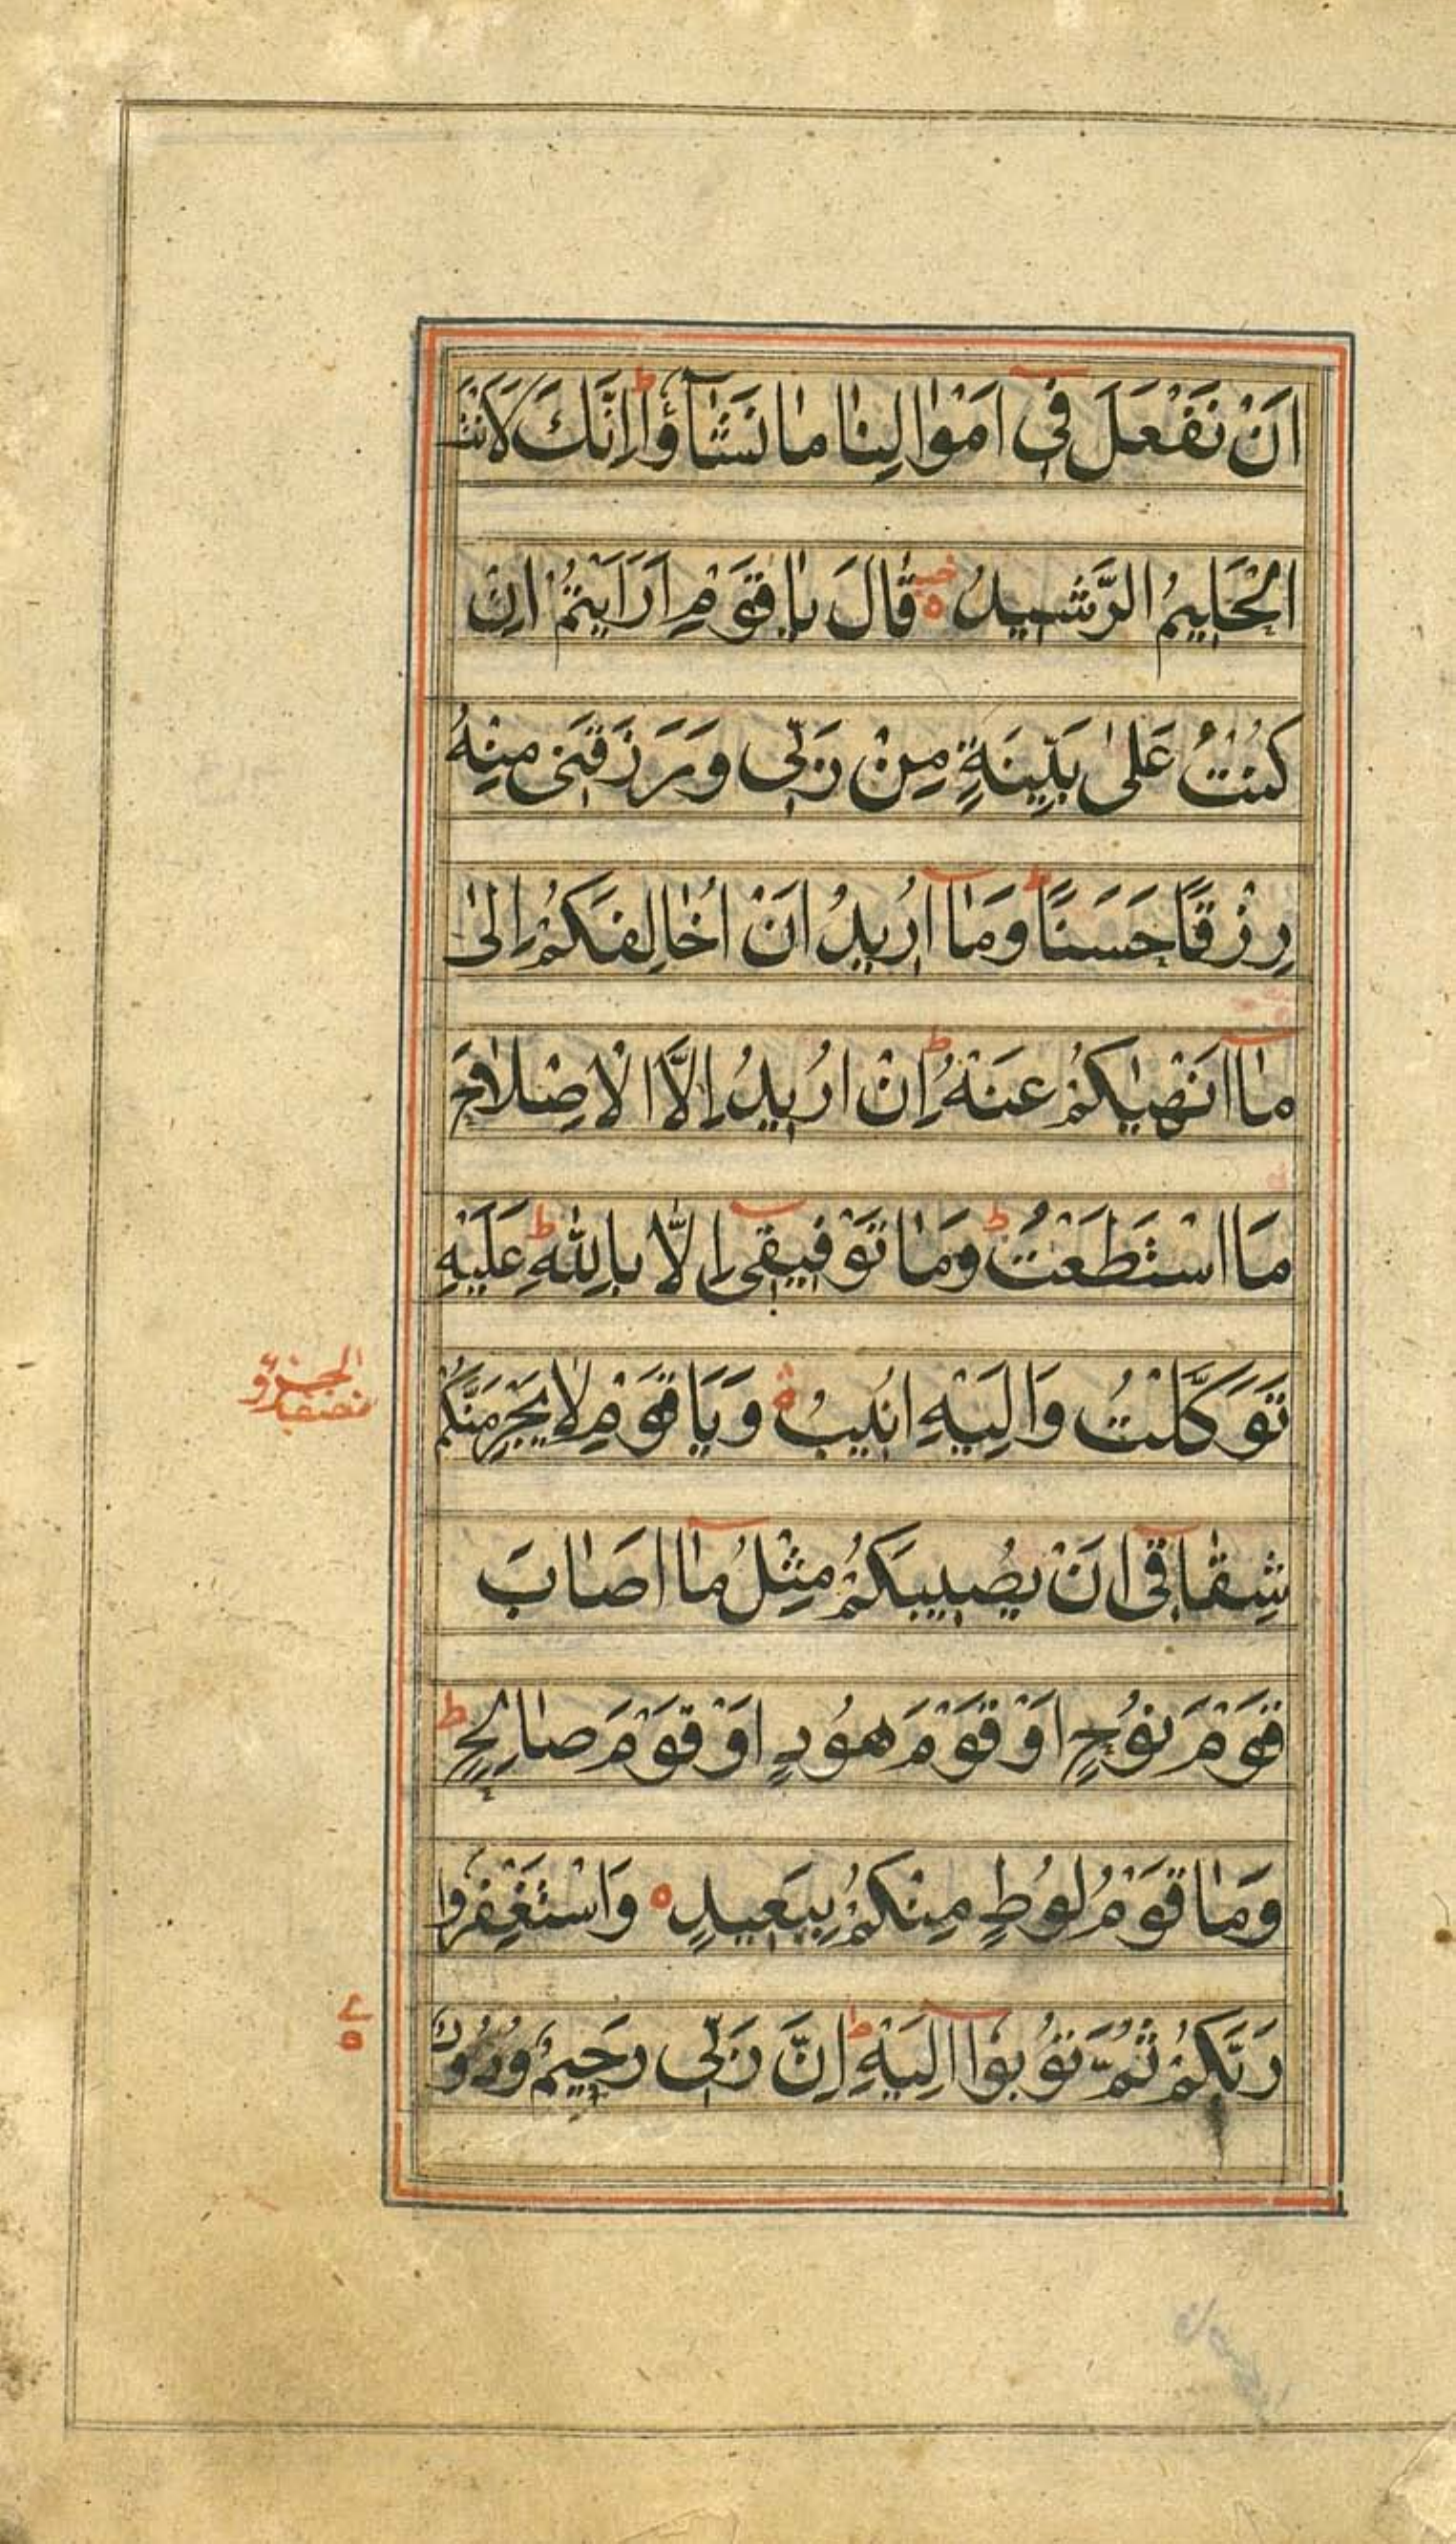 اَنْ نَفْعَلَ فٖى اَمْوٰالِنٰا مٰا نَشٰٓاؤُاط اِنَّكَ لَاَنْتَ
الْحَلٖيمُ الرَّشٖيدُ ه قٰالَ يٰا قَوْمِ اَرَاَيْتُمْ اِنْ
كُنْتُ عَلىٰ بَيِّنَةٍ مِنْ رَبّٖى وَرَزَقَنٖى مِنْهُ
رِزْقًا حَسَنًا ط وَمٰٓا اُرٖيدُ اَنْ اُخٰالِفَكُمْ اِلىٰ
مٰٓا اَنْهٰيكُمْ عَنْهُ ط اِنْ اُرٖيدُ اِلَّا الْاِصْلٰاحَ
مَا اسْتَطَعْتُ ط وَمٰا تَوْفٖيقٖٓى اِلّٰا بِاللّٰهِ ط عَلَيْهِ
تَوَكَّلْتُ وَاِلَيْهِ اُنٖيبُ ه وَيَا قَوْمِ لٰا يَجْرِمَنَّكُمْ
الجزؤ
نصف
شِقٰاقٖٓى اَنْ يُصٖيبَكُمْ مِثْلُ مٰٓا اَصٰابَ
قَوْمَ نُوحٍ اَوْ قَوْمَ هُودٍ اَوْ قَوْمَ صٰالِحٍ ط
وَمٰا قَوْمُ لُوطٍ مِنْكُمْ بِبَعٖيدٍ ه وَاسْتَغْفِرُوا
رَبَّكُمْ ثُمَّ تُوبُوٓا اِلَيْهِ ط اِنَّ رَبّٖى رَحٖيمٌ وَدُودٌ